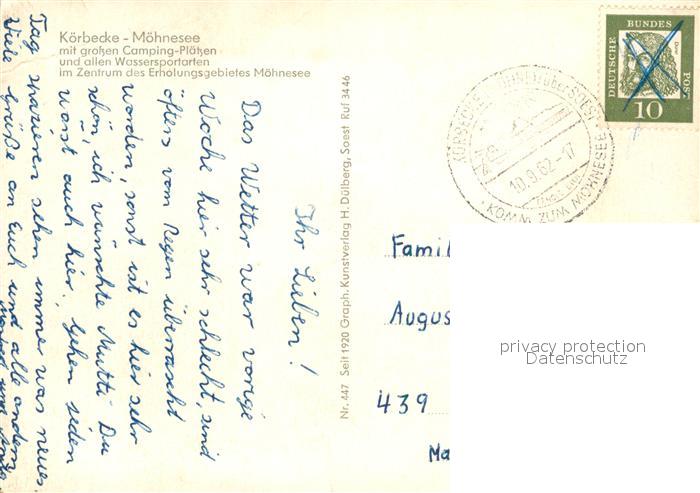 Körbecke - Möhnesee
mit großen Camping-Plätzen
und allen Wassersportarten
im Zentrum des Erholungsgebietes Möhnesee
Ihr Lieben!
Das Wetter war vorige
Woche hier sehr schlecht, sind
öfters vom Regen überrascht
worden, sonst ist es hier sehr
schön, ich wünschte Mutti Du
warst auch hier. Gehen jeden
Tag spazieren sehen immer was neues
Viele Grüße an Euch und alle andern
Nr. 447 Seit 1920 Graph. Kunstverlag H. Dülberg, Soest Ruf 3446
DEUTSCHE
BUNDES
POST
10
Dürer
KÖRBECKE ÜBER SOEST
10.9.62-17
KOMM ZUM MÖHNESEE
Famil
Augus
439
Ma
privacy protection
Datenschutz